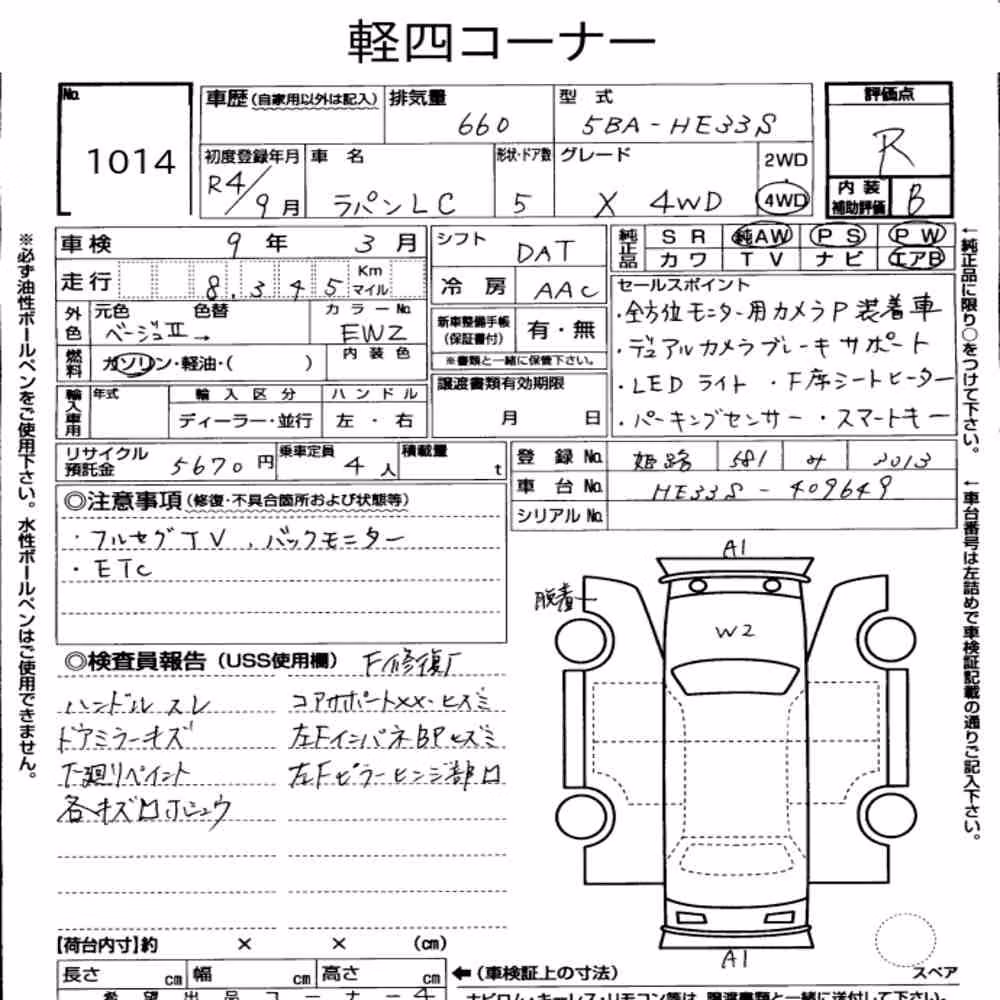 軽四コーナー
No. 1014
車歴 (自家用以外は記入) 排気量 660 型式 5BA-HE33S
初度登録年月 R4/9月 車名 ラパンLC 形状・ドア数 5 グレード X 4WD 2WD 4WD
評価点 R
内装補助評価 B
車検 9年 3月
走行 8.345 Km マイル
外色 元色 ベージュII 色替 → カラーNo. EWZ
燃料 ガソリン・軽油・( ) 内装色
輸入車用 年式 輸入区分 ディーラー・並行 ハンドル 左・右
シフト DAT
冷房 AAC
新車整備手帳 (保証書付) 有・無
※書類と一緒に保管下さい。
譲渡書類有効期限 月 日
純正品 SR 純AW PS PW
カワ TV ナビ エアB
セールスポイント
・全方位モニター用カメラP装着車
・デュアルカメラブレーキサポート
・LEDライト ・F席シートヒーター
・パーキングセンサー ・スマートキー
リサイクル預託金 5670円 乗車定員 4人 積載量 t
登録No. 姫路 581 み 2013
車台No. HE33S-409649
シリアルNo.
◎注意事項 (修復・不具合箇所および状態等)
・フルセグTV、バックモニター
・ETC
◎検査員報告 (USS使用欄) F修復了
ハンドルスレ
ドアミラーキズ
下廻りペイント
コアサポートXX・ヒズミ
左FインパネBPヒズミ
左Fピラーヒンジ部
A1
脱着
W2
A1
スペア
【荷台内寸】約 × × (cm)
長さ cm 幅 cm 高さ cm
←(車検証上の寸法)
希望出品コーナー 4
ナビロム・キーレス・リモコン等は、譲渡書類と一緒に送付して下さい。
※必ず油性ボールペンをご使用下さい。水性ボールペンはご使用できません。
←純正品に限り○をつけて下さい。
←車台番号は左詰めで車検証記載の通りご記入下さい。